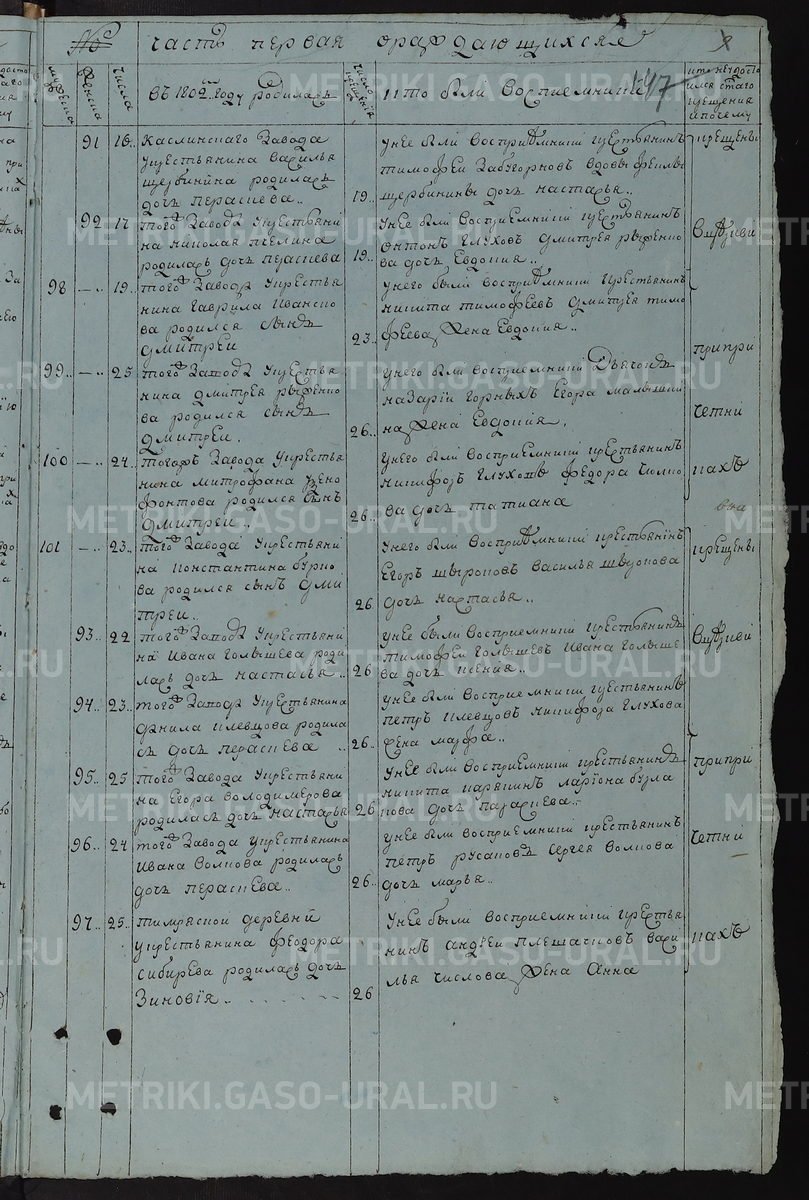 № часть первая о раждающихся
мужеска
женска
числа
въ 1802 году родилась
число крещения
кто были восприемники
117
91 16. Каслинскаго завода
у крестьянина Василья
Щербинина родилась
дочь Пераскева..
19..
у нее были восприемники крестьянинъ
Тимофей Забугорновъ вдовы
Щербинины дочь Настасья..
крещены
92 17 того завода у крестьяни
на Николая
родилась дочь Пераскева
19..
у нее были восприемники крестьянинъ
Онтонъ Глуховъ Дмитрея Рыженко
ва дочь Евдокия..
в церкви
98 — 19.. того завода у крестья
нина Гаврила Иванско
ва родился сынъ
Дмитрей
23..
у него были восприемники крестьянинъ
Никита Тимофеевъ Дмитрея Тимо
феева жена Евдокия..
99.. — 25 того завода у крестья
нина Дмитрея Рыженко
ва родился сынъ
Дмитрей.
26..
у него были восприемники дьячокъ
Назарий Горныхъ Егора Малышки
на жена Евдокия.
при при
четни
кахъ
100 — 24.. тогожъ завода у крестья
нина Митрофана Ксено
фонтова родился сынъ
Дмитрей..
26..
у него были восприемники крестьянинъ
Никифоръ Глуховъ Федора
ва дочь Татиана
101 — 23.. того завода у крестьяни
на Константина Бурко
ва родился сынъ Дми
трей..
26.
у него были восприемники крестьянинъ
Егоръ Широковъ Василья Широкова
дочь Настасья..
крещены
93.. 22 того завода у крестьяни
на Ивана Голышева роди
лась дочь Настасья..
26
у нее были восприемники крестьянинъ
Тимофей Голышевъ Ивана Голыше
ва дочь Ксения..
в церкви
94.. 23.. того завода у крестьянина
Данила Плевцова родила
сь дочь Пераскева
26..
у нее были восприемники крестьянинъ
Петръ Плевцовъ Никифора Глухова
жена Марфа..
95.. 25 того завода у крестьяни
на Егора Володимерова
родилась дочь Настасья
26
у нее были восприемники крестьянинъ
Никита Карякинъ Лариона Бузла
кова дочь Параскева..
при при
96.. 24 того завода у крестьянина
Ивана Волкова родилась
дочь Пераскева..
26..
у нее были восприемники крестьянинъ
Петръ Русановъ Сергея Волкова
дочь Марья..
четни
97.. 25. Тимряской деревни
у крестьянина Феодора
Сибирева родилась дочь
Зиновия..
26
у нее были восприемники крестья
нинъ Андрей Плешачковъ Васи
лья Числова жена Анна
кахъ
METRIKI.GASO-URAL.RU